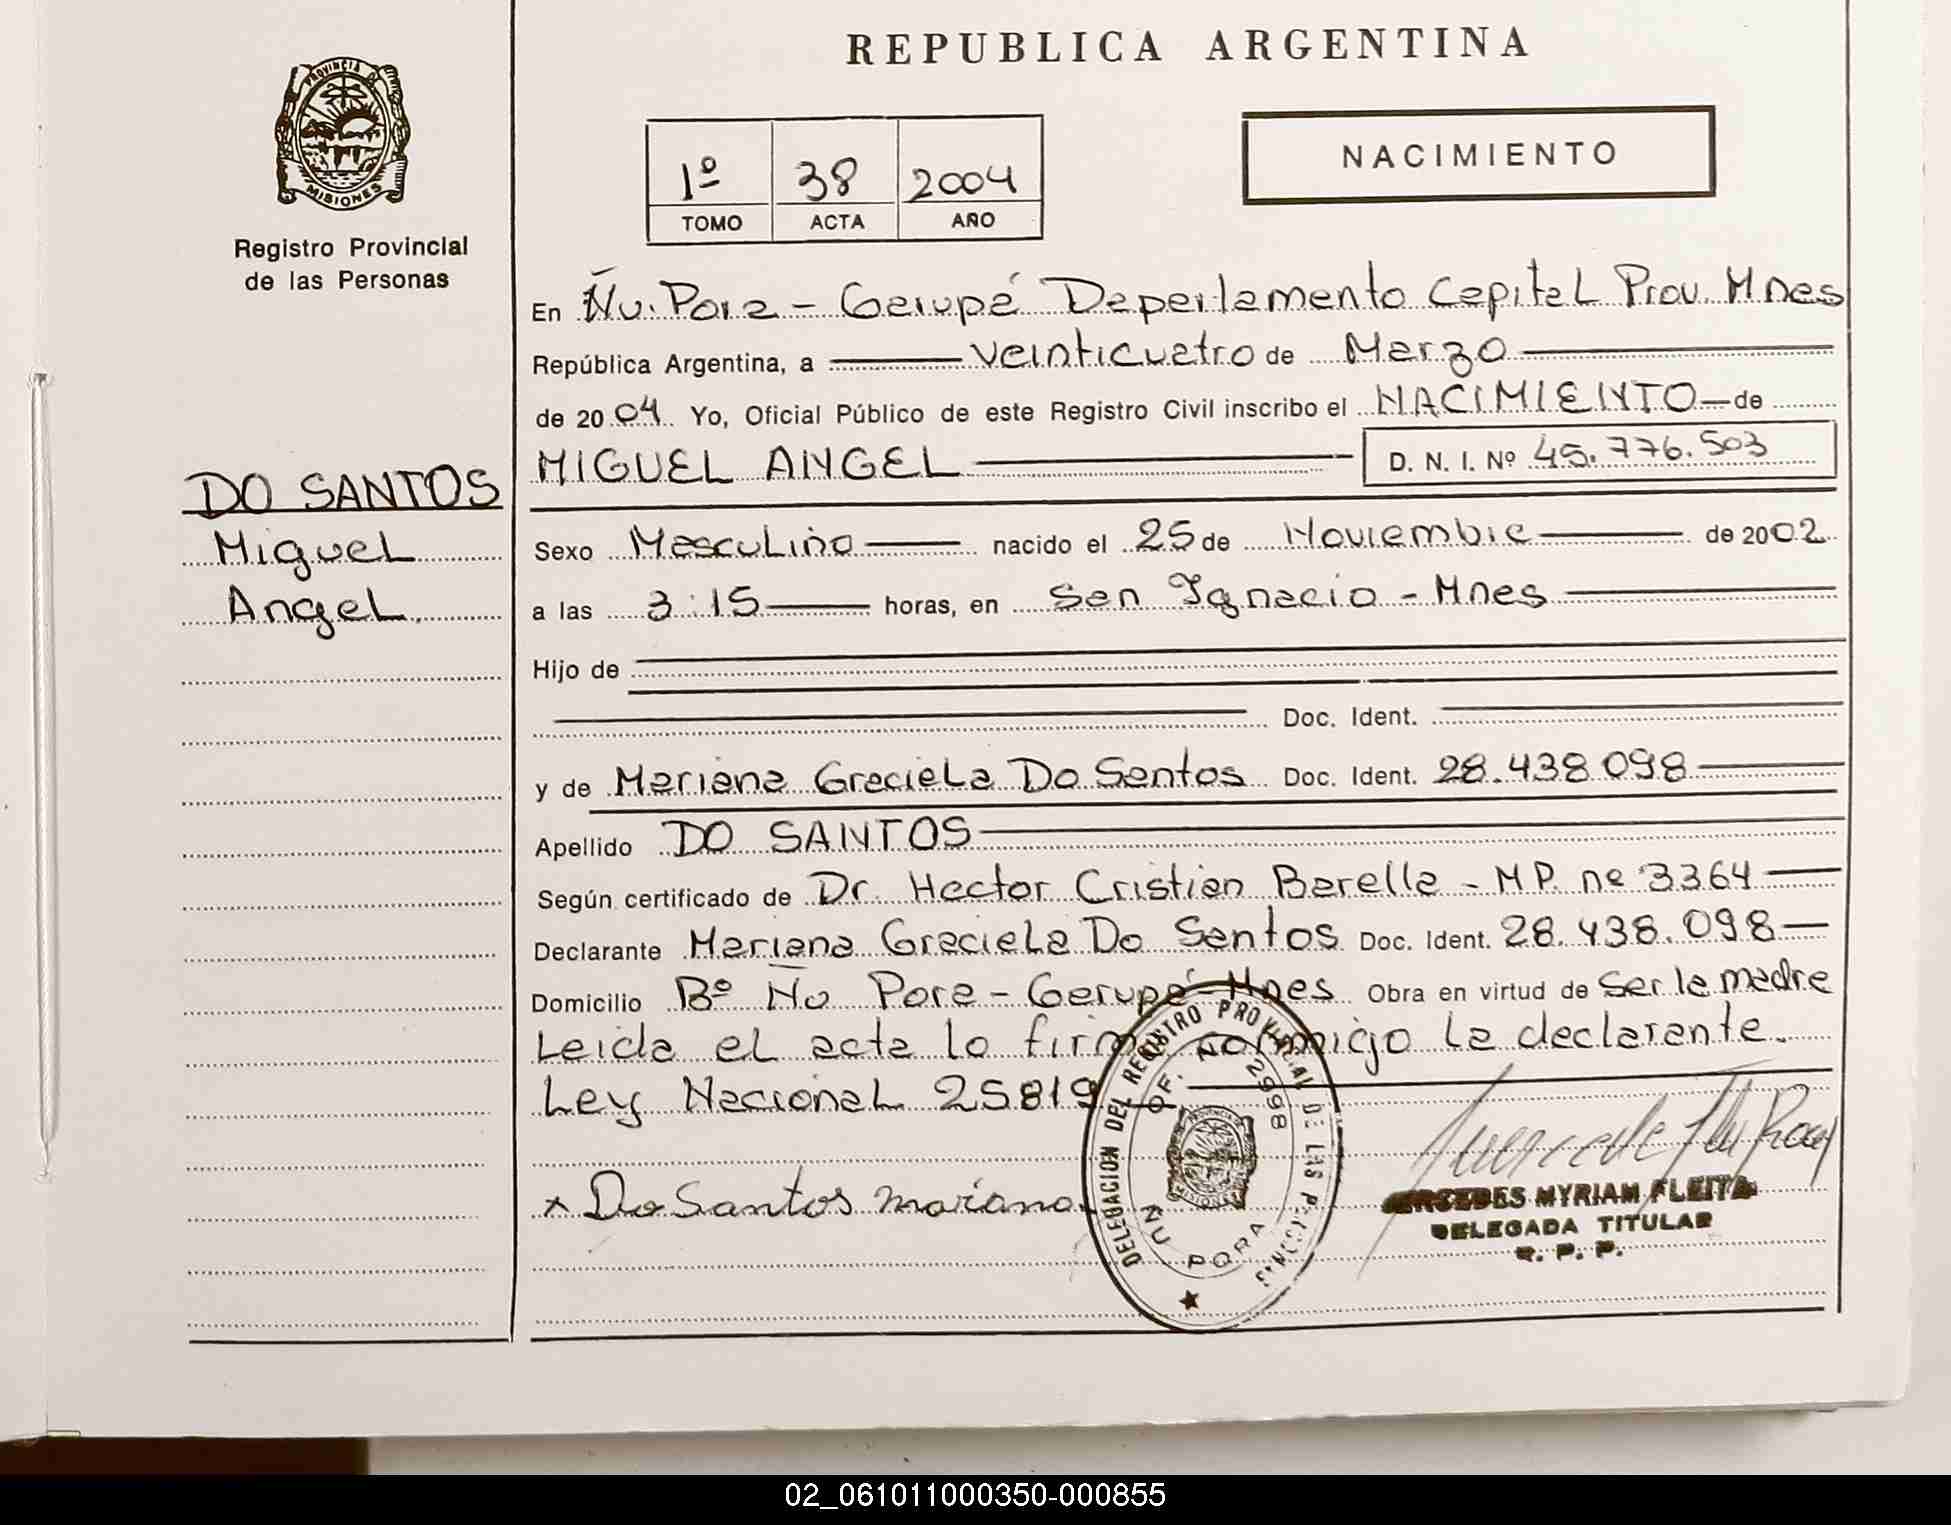 REPUBLICA ARGENTINA
PROVINCIA DE
MISIONES
Registro Provincial
de las Personas
1º 38 2004
TOMO ACTA AÑO
NACIMIENTO
En Ñu. Pora - Garupá Departamento Capital Prov. Mnes
República Argentina, a veinticuatro de Marzo
de 2004 Yo, Oficial Público de este Registro Civil inscribo el NACIMIENTO de
MIGUEL ANGEL D. N. I. Nº 45.776.503
DO SANTOS
Miguel
Angel.
Sexo Masculino nacido el 25 de Noviembre de 2002
a las 3:15 horas, en San Ignacio - Mnes
Hijo de
Doc. Ident.
y de Mariana Graciela Do Santos Doc. Ident. 28.438.098
Apellido DO SANTOS
Según certificado de Dr. Hector Cristian Barella - M P. nº 3364
Declarante Mariana Graciela Do Santos Doc. Ident. 28.438.098
Domicilio Bº Ñu Pora - Garupá - Mnes Obra en virtud de Ser la madre
Leida el acta lo firma conmigo la declarante.
Ley Nacional 25819
x Do Santos mariana.
DELEGACION DEL REGISTRO PROVINCIAL DE LAS PERSONAS
OF. 2998
MISIONES
ÑU PORA
MERCEDES MYRIAM FLEITA
DELEGADA TITULAR
R. P. P.
02_061011000350-000855